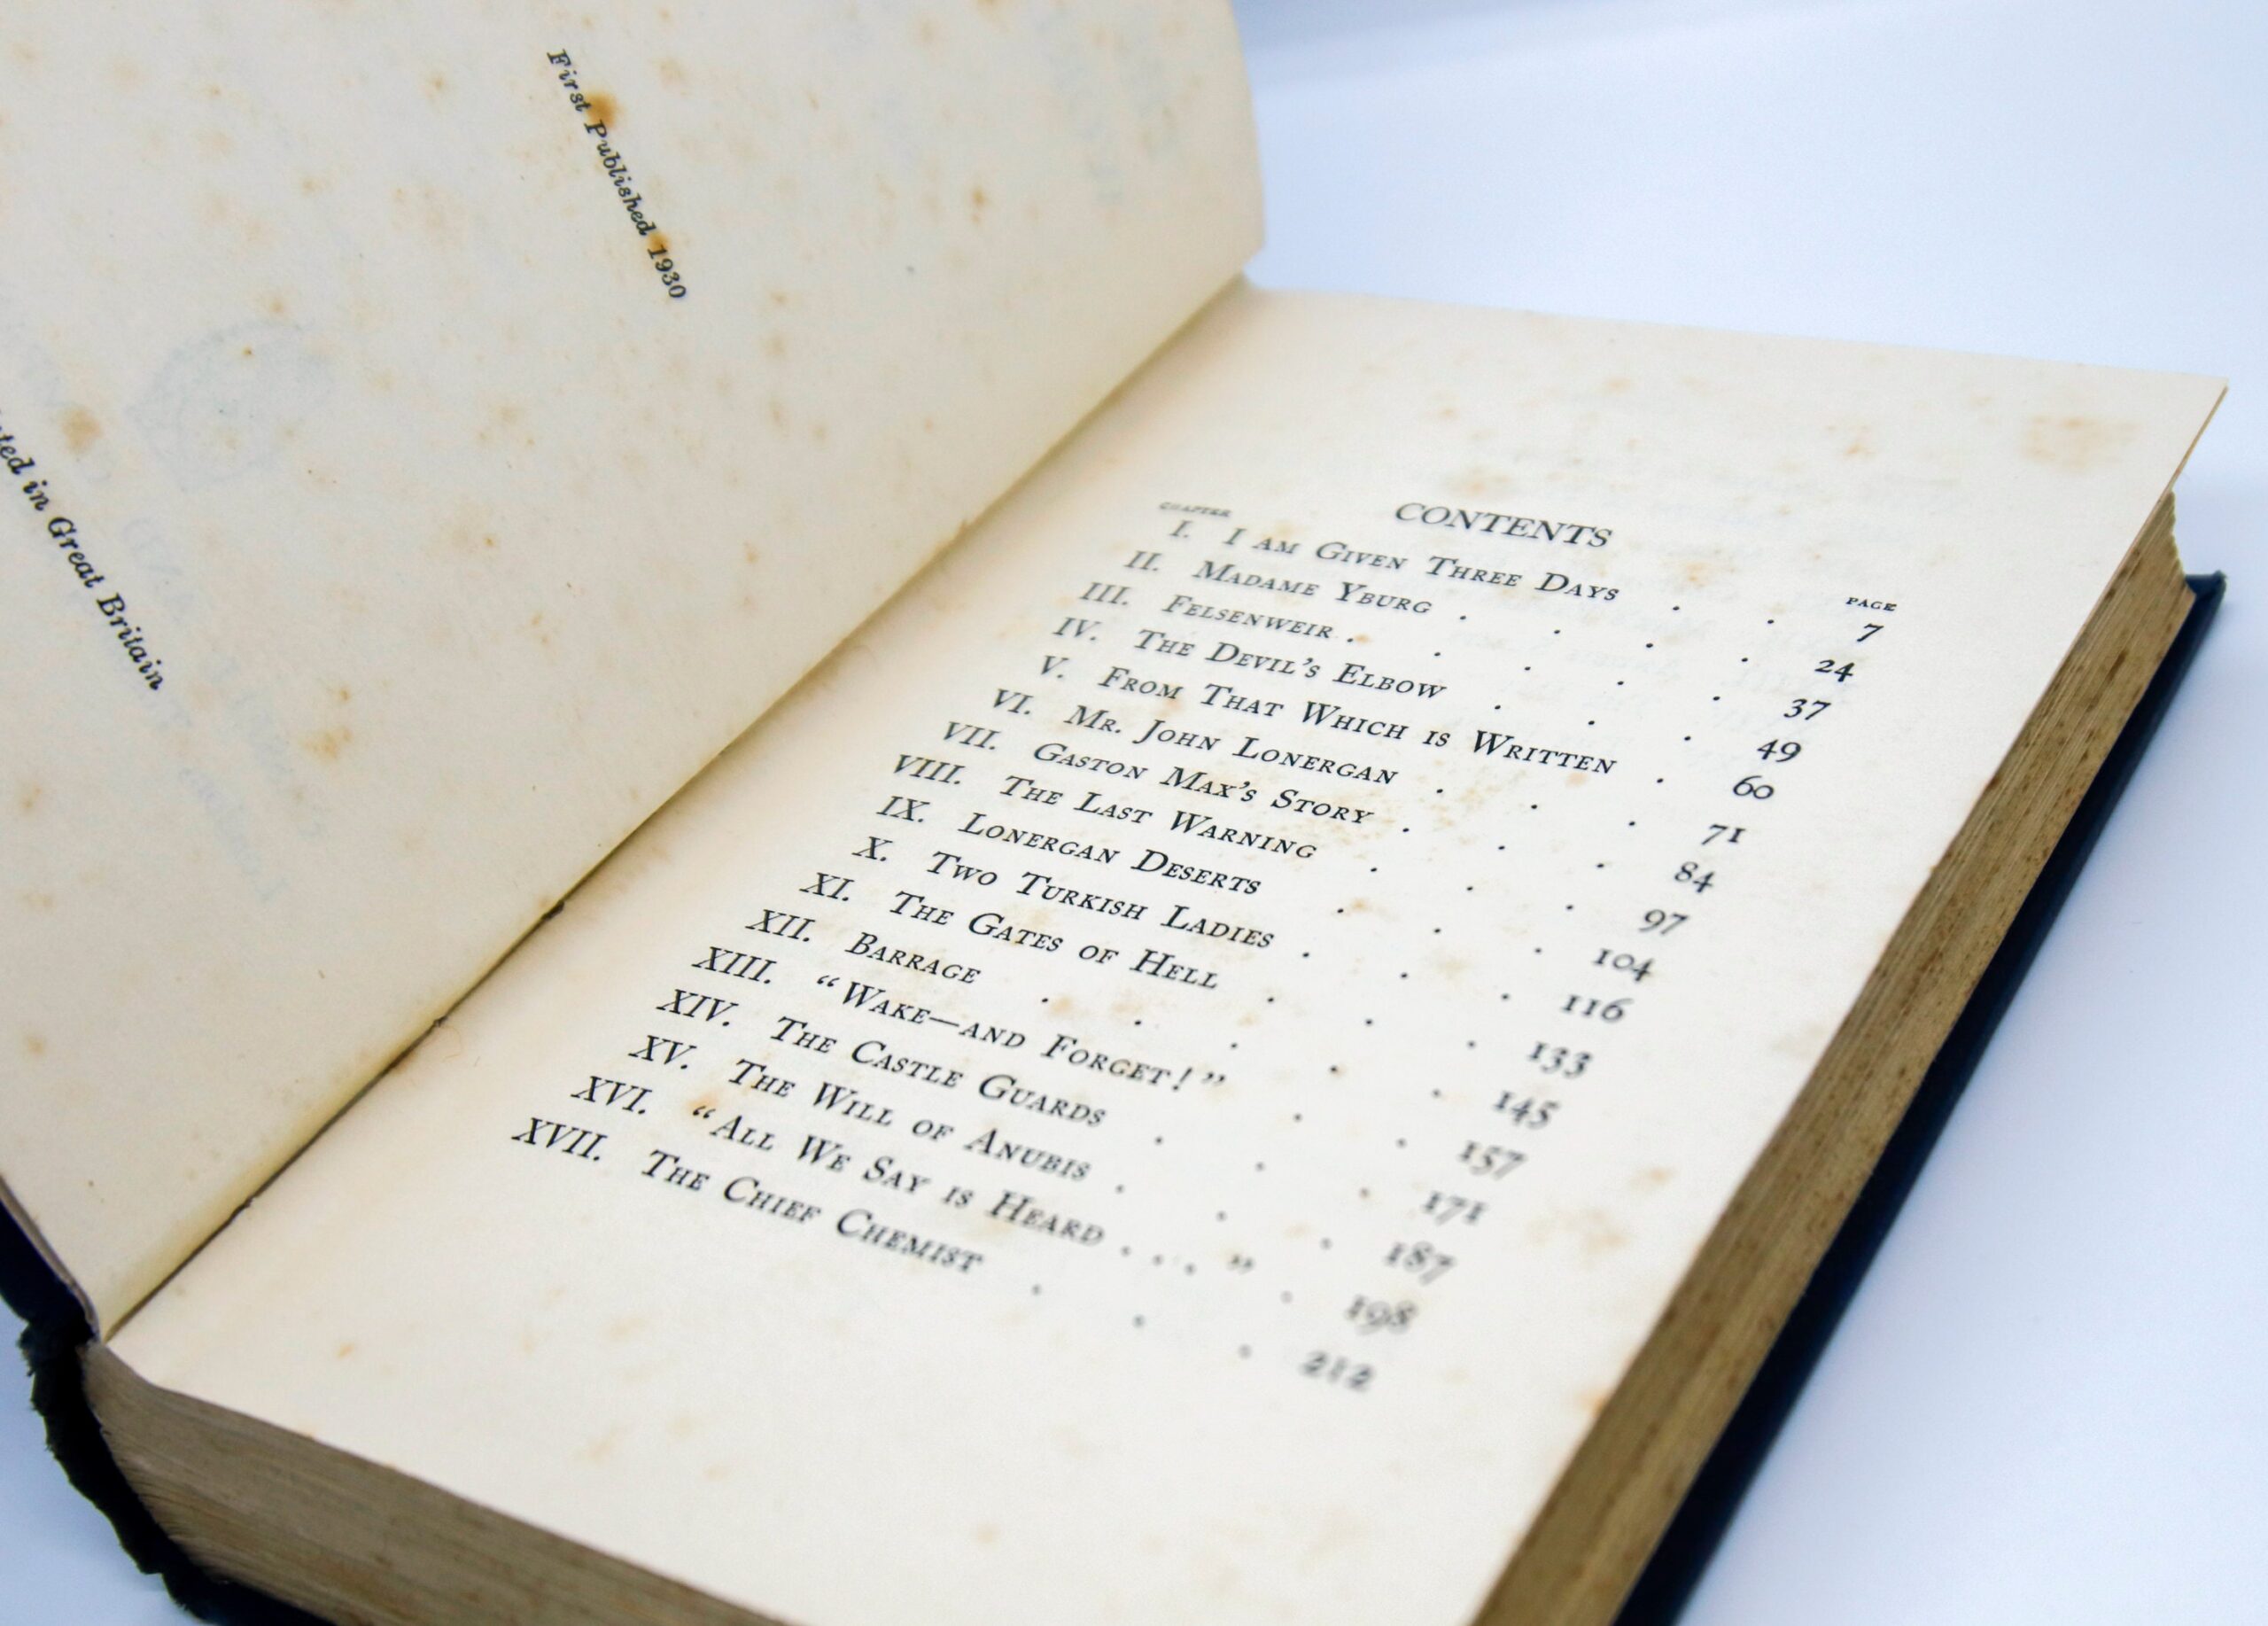 First Published 1930
in Great Britain
CONTENTS
CHAPTER PAGE
I. I AM GIVEN THREE DAYS . . 7
II. MADAME YBURG . . . . 24
III. FELSENWEIR . . . . . 37
IV. THE DEVIL'S ELBOW . . . 49
V. FROM THAT WHICH IS WRITTEN . 60
VI. MR. JOHN LONERGAN . . . 71
VII. GASTON MAX'S STORY . . . 84
VIII. THE LAST WARNING . . . 97
IX. LONERGAN DESERTS . . . 104
X. TWO TURKISH LADIES . . . 116
XI. THE GATES OF HELL . . . 133
XII. BARRAGE . . . . . 145
XIII. “WAKE—AND FORGET!” . . 157
XIV. THE CASTLE GUARDS . . . 171
XV. THE WILL OF ANUBIS . . . 187
XVI. “ALL WE SAY IS HEARD . . . ” . 198
XVII. THE CHIEF CHEMIST . . . 212